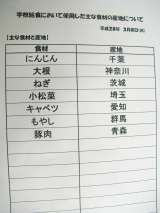 学校給食において使用した主な食材の産地について
平成28年 3月8日(火)
【主な食材と産地】
食材 産地
にんじん 千葉
大根 神奈川
ねぎ 茨城
小松菜 埼玉
キャベツ 愛知
もやし 群馬
豚肉 青森